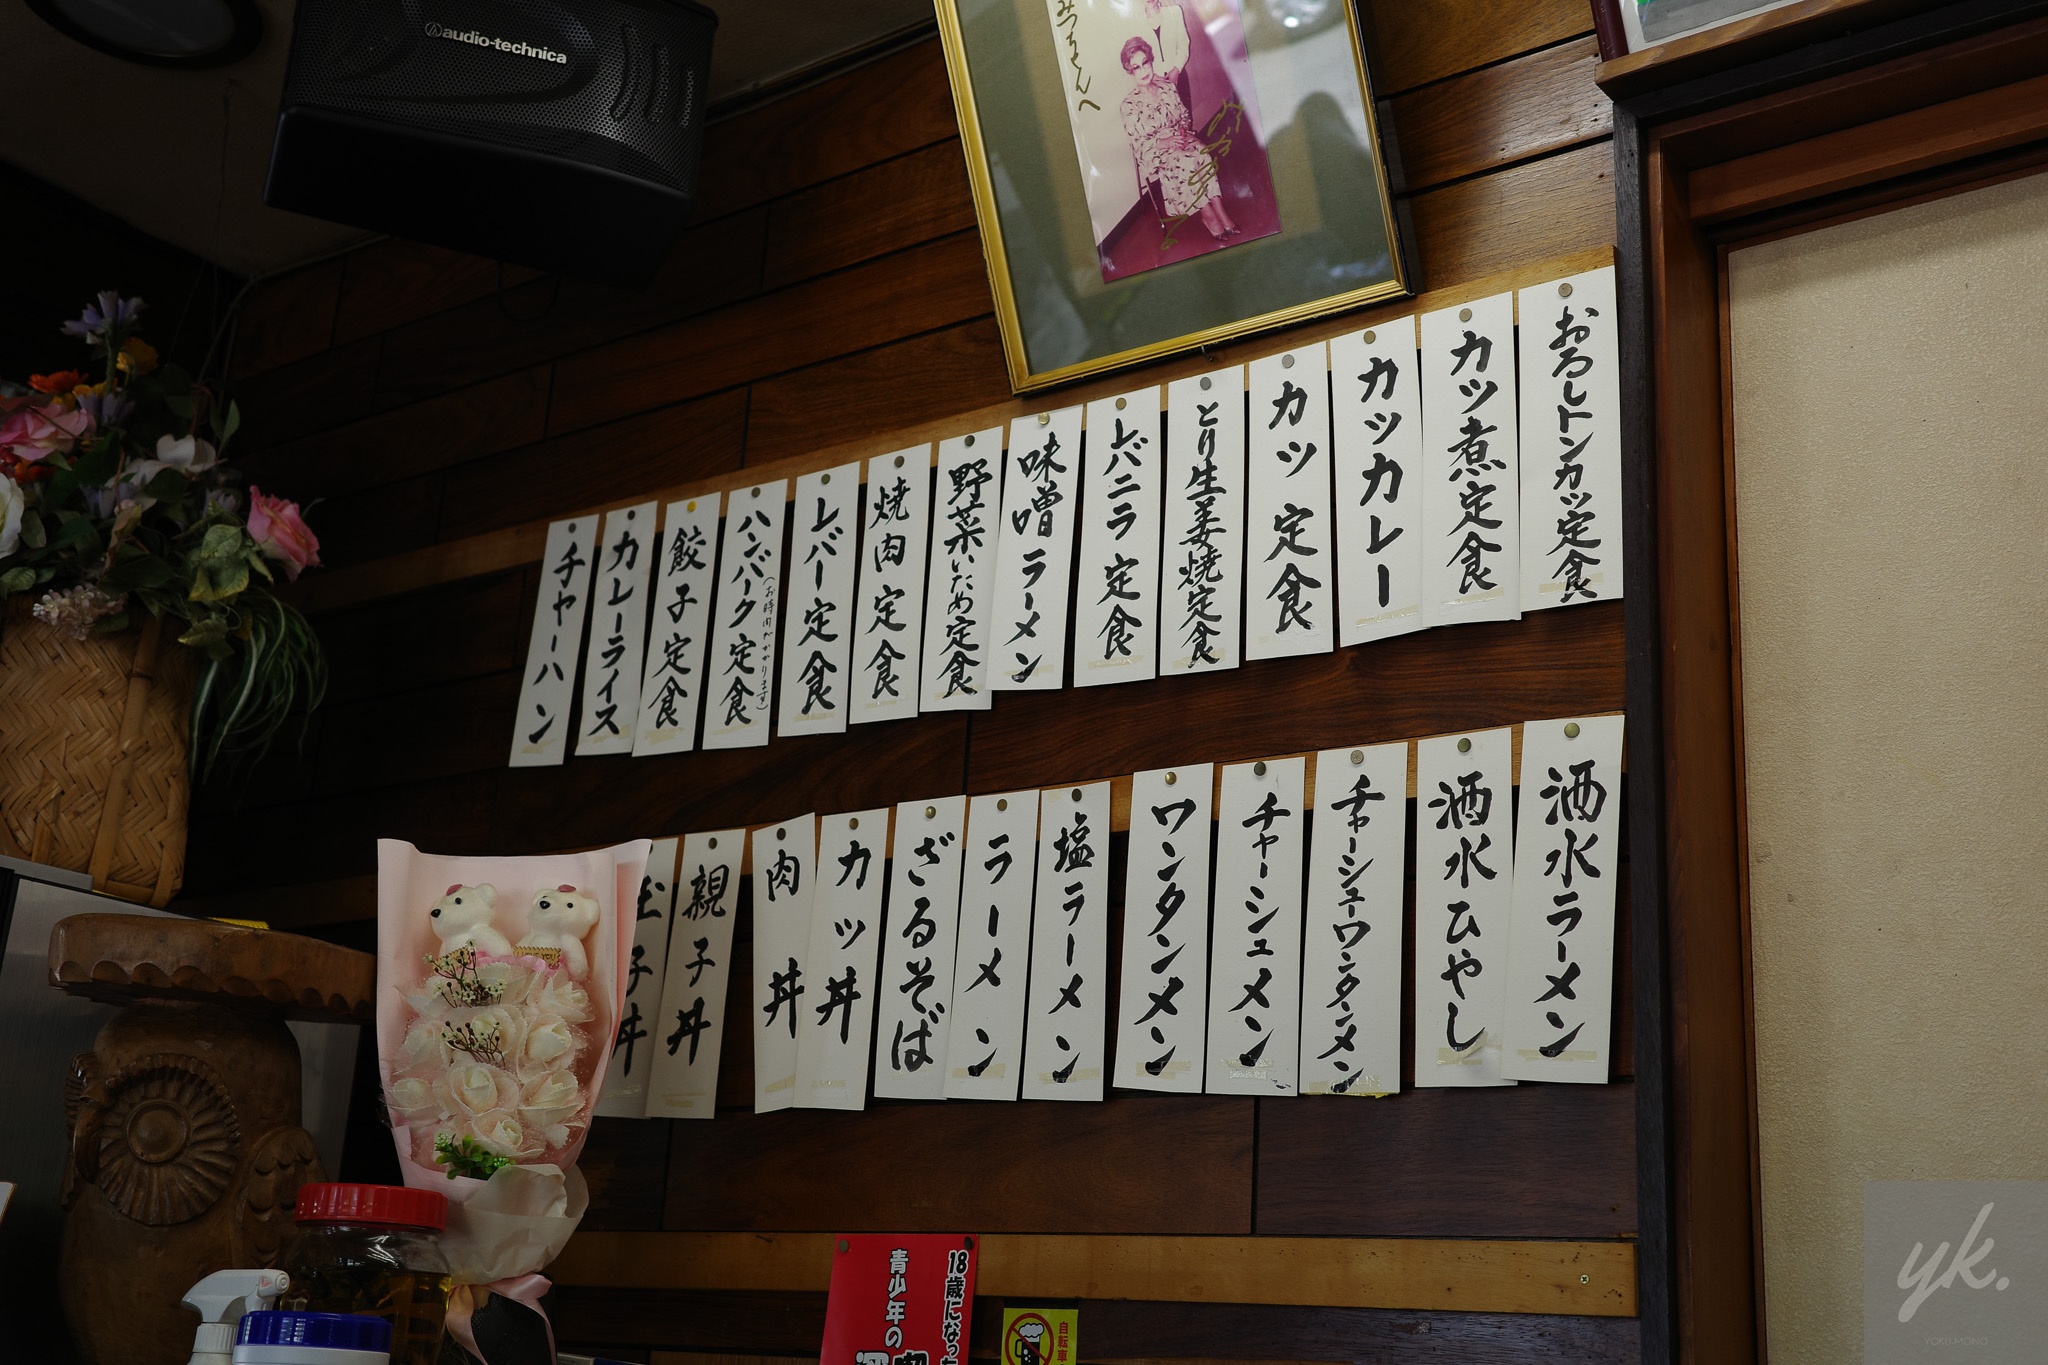 audio-technica
みつるさんへ
おろしトンカツ定食
カツ煮定食
カツカレー
カツ定食
とり生姜焼定食
レバニラ定食
味噌ラーメン
野菜いため定食
焼肉定食
レバー定食
ハンバーグ定食
(お時間がかかります)
餃子定食
カレーライス
チャーハン
酒水ラーメン
酒水ひやし
チャーシューワンタンメン
チャーシュメン
ワンタンメン
塩ラーメン
ラーメン
ざるそば
カツ丼
肉丼
親子丼
玉子丼
18歳になった
青少年の
自転車
yk.
YOKU-MONO